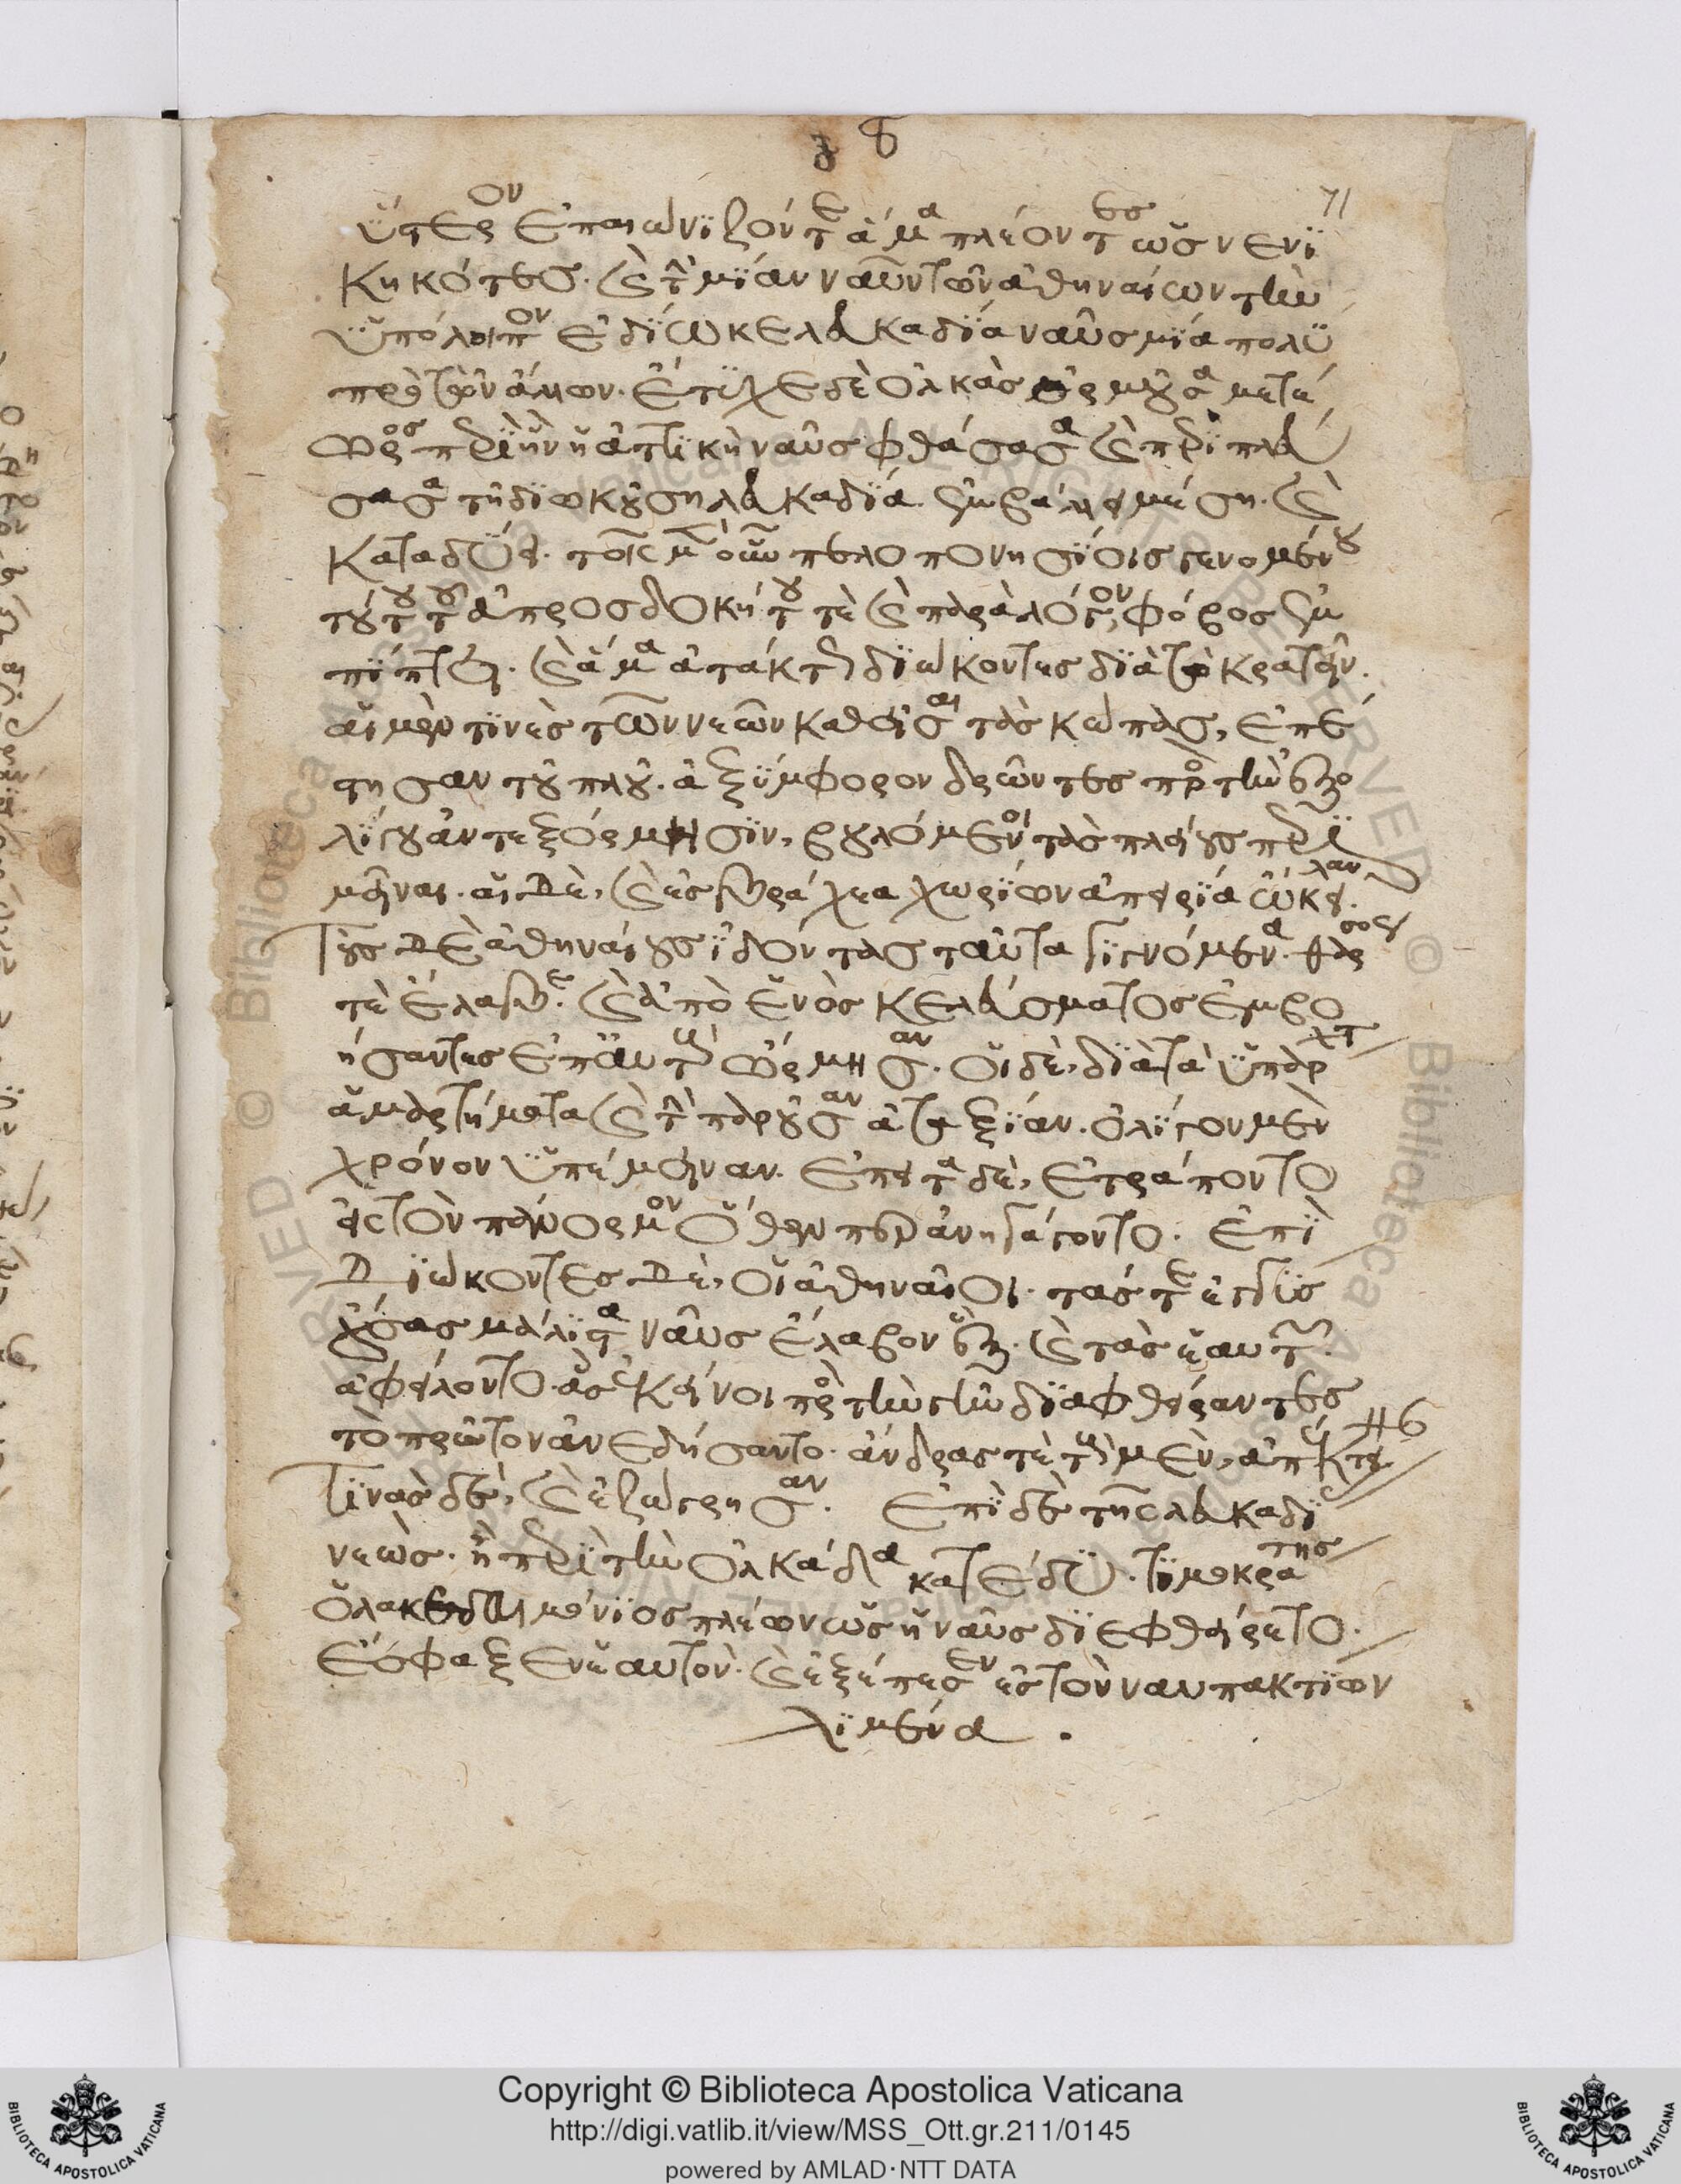 οδ
71
ὕστερον ἐπαιώνιζόν τε ἅμα πλέοντες ὡς νενι
κηκότες. καὶ τὴν μίαν ναῦν τῶν ἀθηναίων τὴν
ὑπόλοιπον ἐδίωκε λευκαδία ναῦς μία πολὺ
πρὸ τῶν ἄλλων. ἔτυχε δὲ ὁλκὰς ὁρμοῦσα μετέ
ωρος περὶ ἣν ἡ ἀττικὴ ναῦς φθάσασα καὶ περιπλεύ
σασα τῇ διωκούσῃ λευκαδία ἐμβάλλει μέσῃ. καὶ
καταδύει. τοῖς μὲν οὖν πελοποννησίοις γενομένου
τούτου τοῦ ἀπροσδοκήτου τὲ καὶ παραλόγου, φόβος ἐμ
πίπτει. καὶ ἅμα ἀτάκτως διώκοντες διὰ τὸ κρατεῖν.
αἱ μέν τινὲς τῶν νεῶν καθεῖσαι τὰς κώπας, ἐπέ
στησαν τοῦ πλοῦ. ἀξύμφορον δρῶντες πρὸς τὴν ἐξ ὀ
λίγου ἀντεξόρμησιν, βουλόμενοι τὰς πλείους περι
μεῖναι. αἱ δὲ, καὶ ἐς βράχεα χωρίων ἀπειρίᾳ ὤκειλαν
τοὺς δὲ ἀθηναίους ἰδόντας ταῦτα γιγνόμενα. θάρσος
τὲ ἔλαβε. καὶ ἀπὸ ἑνὸς κελεύσματος ἐμβο
ήσαντες ἐπ' αὐτοὺς ὥρμησαν. οἱ δὲ, διὰ τὰ ὑπάρχοντα
ἁμαρτήματα καὶ τὴν παροῦσαν ἀταξίαν. ὀλίγον μὲν
χρόνον ὑπέμειναν. ἔπειτα δὲ, ἐτράποντο
ἐς τὸν πάνορμον ὅθεν περ ἀνηγάγοντο. ἐπι
διώκοντες δὲ, οἱ ἀθηναῖοι. τάς τε ἐγγὺς
οὔσας μάλιστα ναῦς ἔλαβον ἓξ. καὶ τὰς ἑαυτῶν
ἀφείλοντο. ἃς ἐκεῖνοι πρὸς τὴν γὴν διαφθείραντες
τὸ πρῶτον ἀνεδήσαντο. ἄνδρας τὲ τοὺς μὲν, ἀπέκτει
τινὰς δὲ, καὶ ἐζώγρησαν. ἐπὶ δὲ τῆς λευκαδί
νεὼς. ἣ περὶ τὴν ὁλκάδα κατέδυ. τιμοκράτης
ὁ λακεδαιμόνιος πλέων ὡς ἡ ναῦς διεφθείρετο.
ἔσφαξεν ἑαυτὸν. καὶ ἐξέπεσεν ἐς τὸν ναυπακτίων
λιμένα.
Copyright © Biblioteca Apostolica Vaticana
http://digi.vatlib.it/view/MSS_Ott.gr.211/0145
powered by AMLAD·NTT DATA